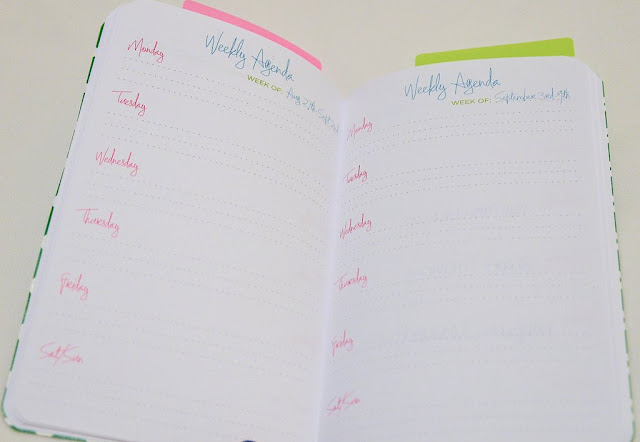 Weekly Agenda
WEEK OF: Aug 27th-Sept 2nd
Monday
Tuesday
Wednesday
Thursday
Friday
Sat/Sun
Weekly Agenda
WEEK OF: September 3rd-9th
Monday
Tuesday
Wednesday
Thursday
Friday
Sat/Sun